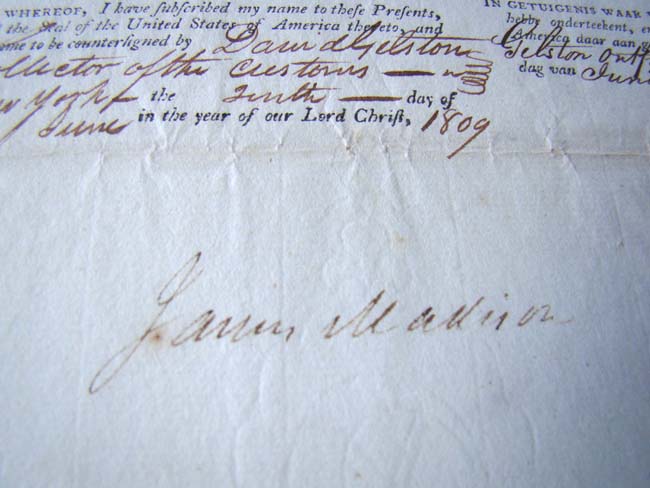 WHEREOF, I have ſubſcribed my name to theſe Preſents,
the Seal of the United States of America thereto, and
ame to be counterſigned by David Gelston
ollector of the Customs —
w York the Tenth — day of
June in the year of our Lord Chriſt, 1809
IN GETUIGENIS WAAR
hebby onderteekent, e
America daar aan g
Gelston
dag van Juni
James Madison